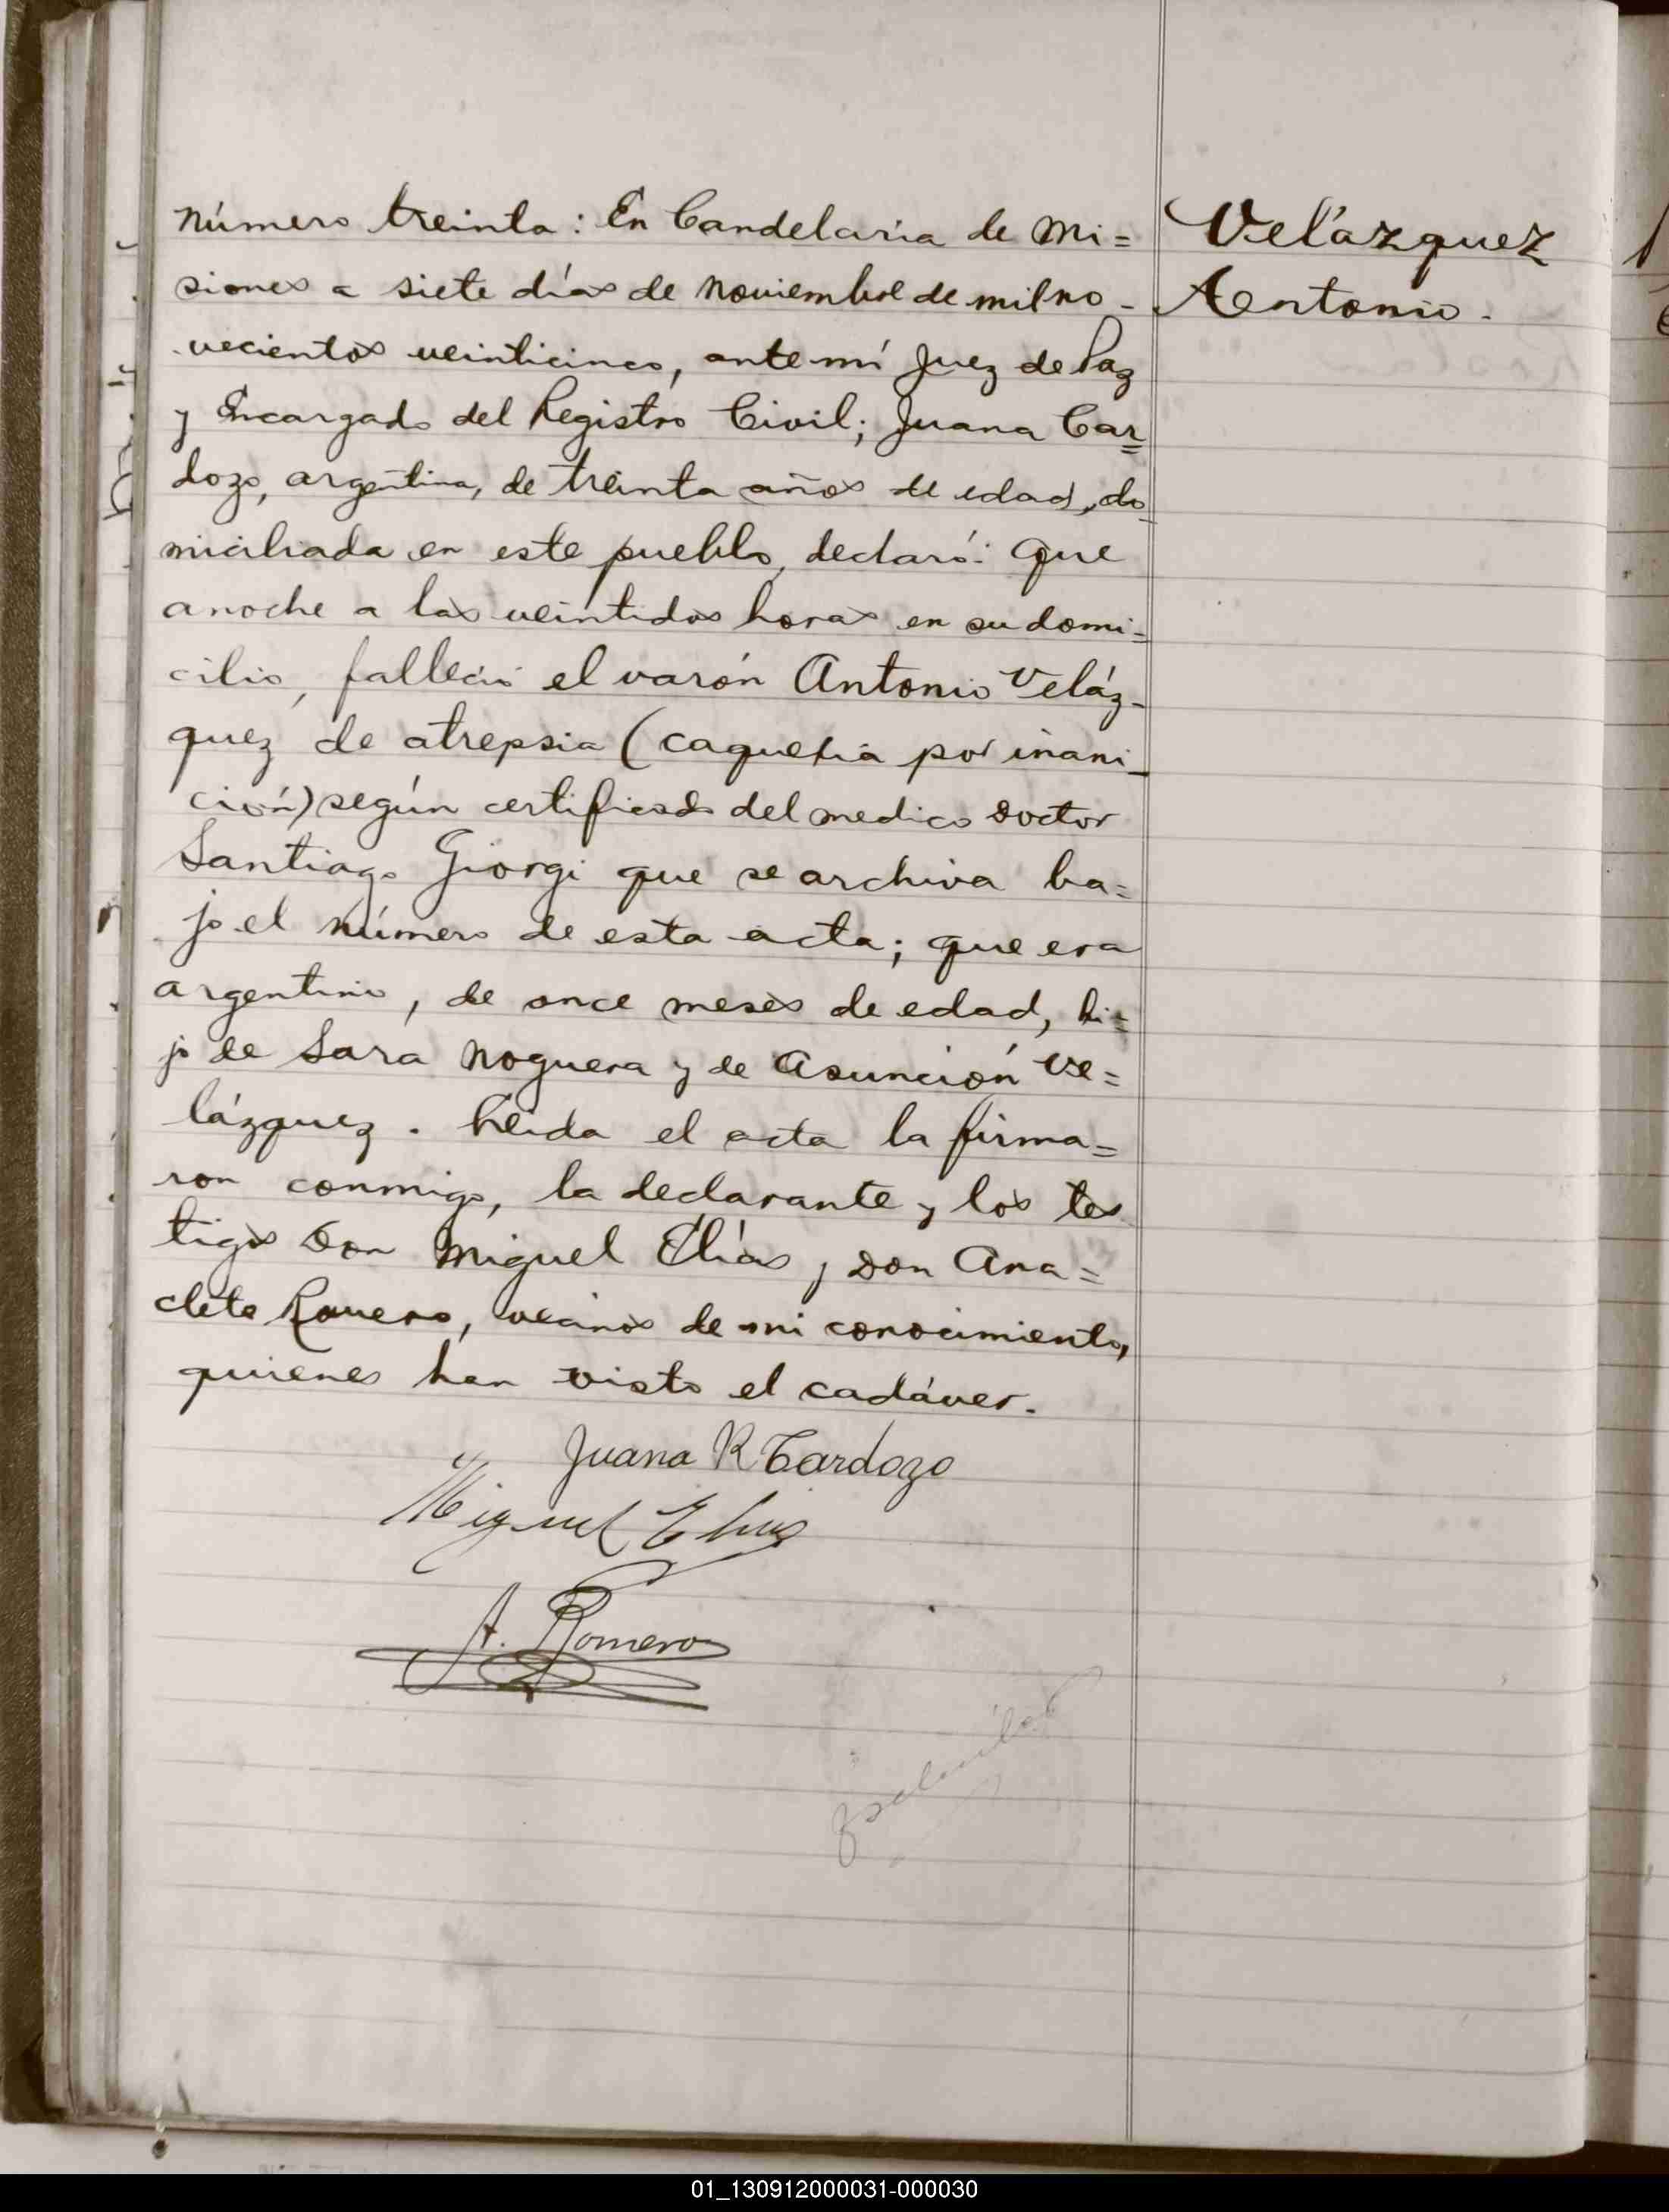 Número treinta: En Candelaria de Mi=
siones a siete días de Noviembre de mil no-
vecientos veinticinco, ante mí Juez de Paz
y Encargado del Registro Civil; Juana Car=
dozo, argentina, de treinta años de edad, do-
miciliada en este pueblo, declaró: Que
anoche a las veintidos horas en su domi=
cilio, falleció el varón Antonio Veláz-
quez de atrepsia (caquexia por inani-
ción) según certificado del medico Doctor
Santiago Giorgi que se archiva ba=
jo el número de esta acta; que era
argentino, de once meses de edad, hi=
jo de Sara Noguera y de Asunción Ve=
lázquez. Leida el acta la firma=
ron conmigo, la declarante y los tes
tigos Don Miguel Elías y Don Ana=
cleto Romero, vecinos de mi conocimiento,
quienes han visto el cadáver.
Velázquez
Antonio.
Juana R Cardozo
Miguel Elias
A. Romero
01_130912000031-000030